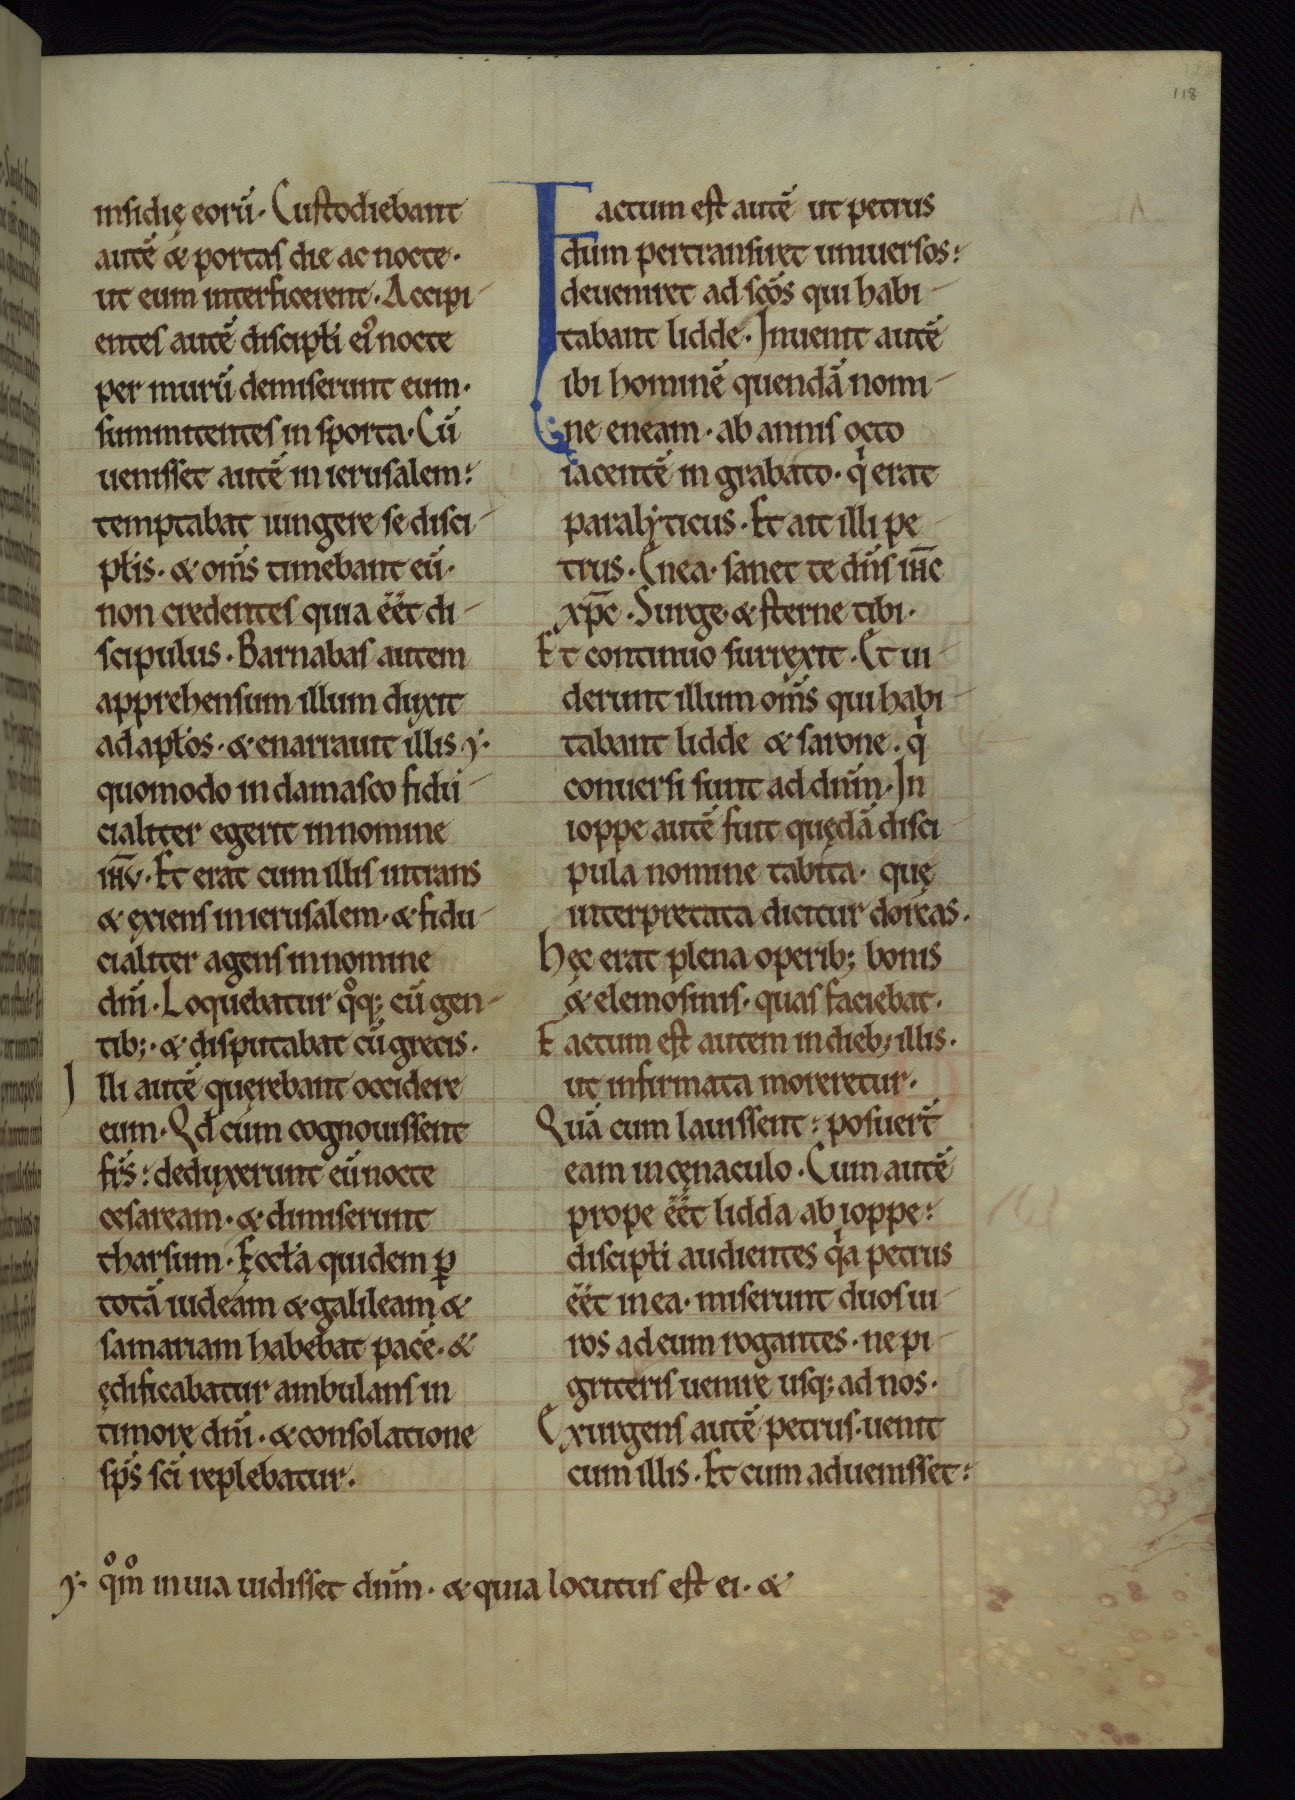 118
insidię eorū. Custodiebant
autē & portas die ac nocte.
ut eum interficerent. Accipi-
entes autē discipłi ei᾽ nocte
per murū demiserunt eum.
summittentes in sporta. Cū
uenisset autē in ierusalem:
temptabat iungere se disci-
płis. & om̄s timebant eū.
non credentes quia ēēt di-
scipulus. Barnabas autem
apprehensum illum duxit
ad apłos. & enarrauit illis y:
quomodo in damasco fidu-
cialiter egerit in nomine
ihū. Et erat cum illis intrans
& exiens in ierusalem. & fidu-
cialiter agens in nomine
dn̄i. Loquebatur qͦq; cū gen-
tib;. & disputabat cū grecis.
Illi autē quęrebant occidere
eum. Qd̄ cum cognouissent
fr̄s: deduxerunt eū nocte
cesaream. & dimiserunt
tharsum. Ęccła quidem ꝑ
totā iudeam & galileam &
samariam habebat pacē. &
ędificabatur ambulans in
timore dn̄i. & consolatione
sp̄s sc̄i replebatur.
y: qͦmͦ in uia uidisset dn̄m. & quia locutus est ei. &
Factum est autē ut petrus
dum pertransiret uniuersos:
deueniret ad sc̄os qui habi-
tabant lidde. Inuenit autē
ibi hominē quendā nomi-
ne eneam. ab annis octo
iacentē in grabato. qⁱ erat
paralyticus. Et ait illi pe-
trus. Enea. sanet te dn̄s ih̄c
xp̄c. Surge. & sterne tibi.
Et continuo surrexit. Et ui-
derunt illum om̄s qui habi-
tabant lidde & sarone. qⁱ
conuersi sunt ad dn̄m. In
ioppe autē fuit quędā disci-
pula nomine tabita. quę
interpretata dicitur dorcas.
Hęc erat plena operib; bonis
& elemosinis. quas faciebat.
Factum est autem in dieb; illis.
ut infirmata moreretur.
Quā cum lauissent: posuer̄t
eam in cęnaculo. Cum autē
prope ēēt lidda ab ioppe:
discipłi audientes qᵃa petrus
ēēt in ea. miserunt duos ui-
ros ad eum rogantes. ne pi-
griteris uenire usq; ad nos.
Exurgens autē petrus. uenit
cum illis. Et cum aduenisset: